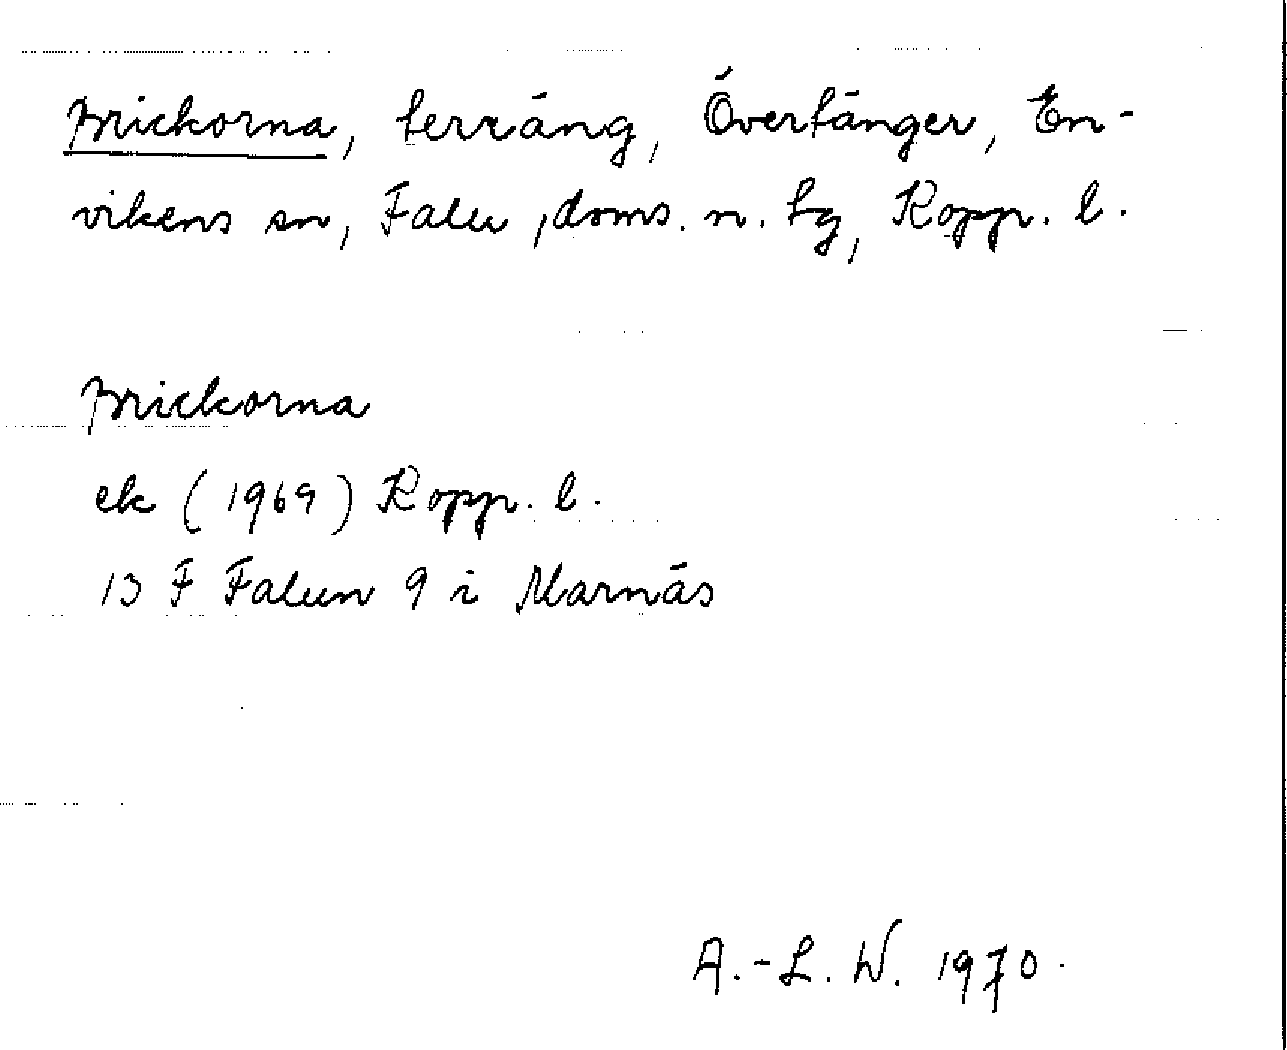 Prickorna, terräng, Övertänger, En-
vikens sn, Falu doms. n. tg, Kopp. l.
Prickorna
ek (1969) Kopp. l.
13 F Falun 9 i Marnäs
A.-L. W. 1970.